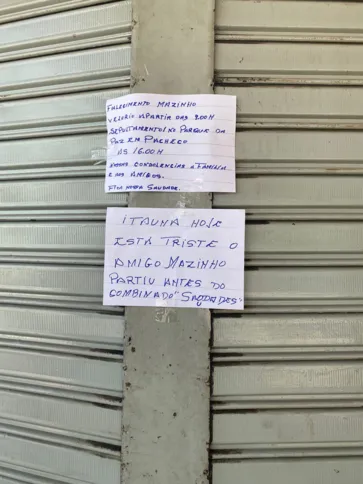 FALECIMENTO MAZINHO
VELÓRIO APARTIR DAS 9:00H
SEPULTAMENTO NO PARQUE DA
PAZ EM PACHECO
AS 16.00H
NOSSAS CONDOLENCIAS A FAMÍLIA
E AOS AMIGOS.
FICA NOSSA SAUDADE.
ITAUNA HOJE
ESTÁ TRISTE O
AMIGO MAZINHO
PARTIU ANTES DO
COMBINADO "SAUDADES"